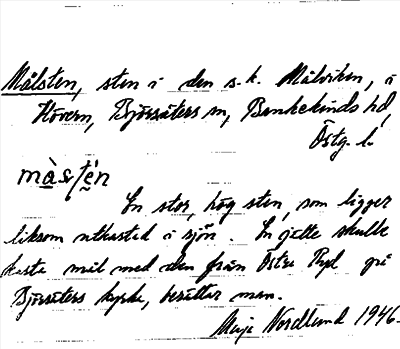 Målsten, sten i den s.k. Målviken, i
Hövern, Björsäters sn, Bankekinds hd,
Östg. l.
màsten
En stor, hög sten, som ligger
liksom utkastad i sjön. En jätte skulle
kasta mål med den från Östra Ryd på
Björsäters kyrka, berättar man.
Maja Nordlund 1946.